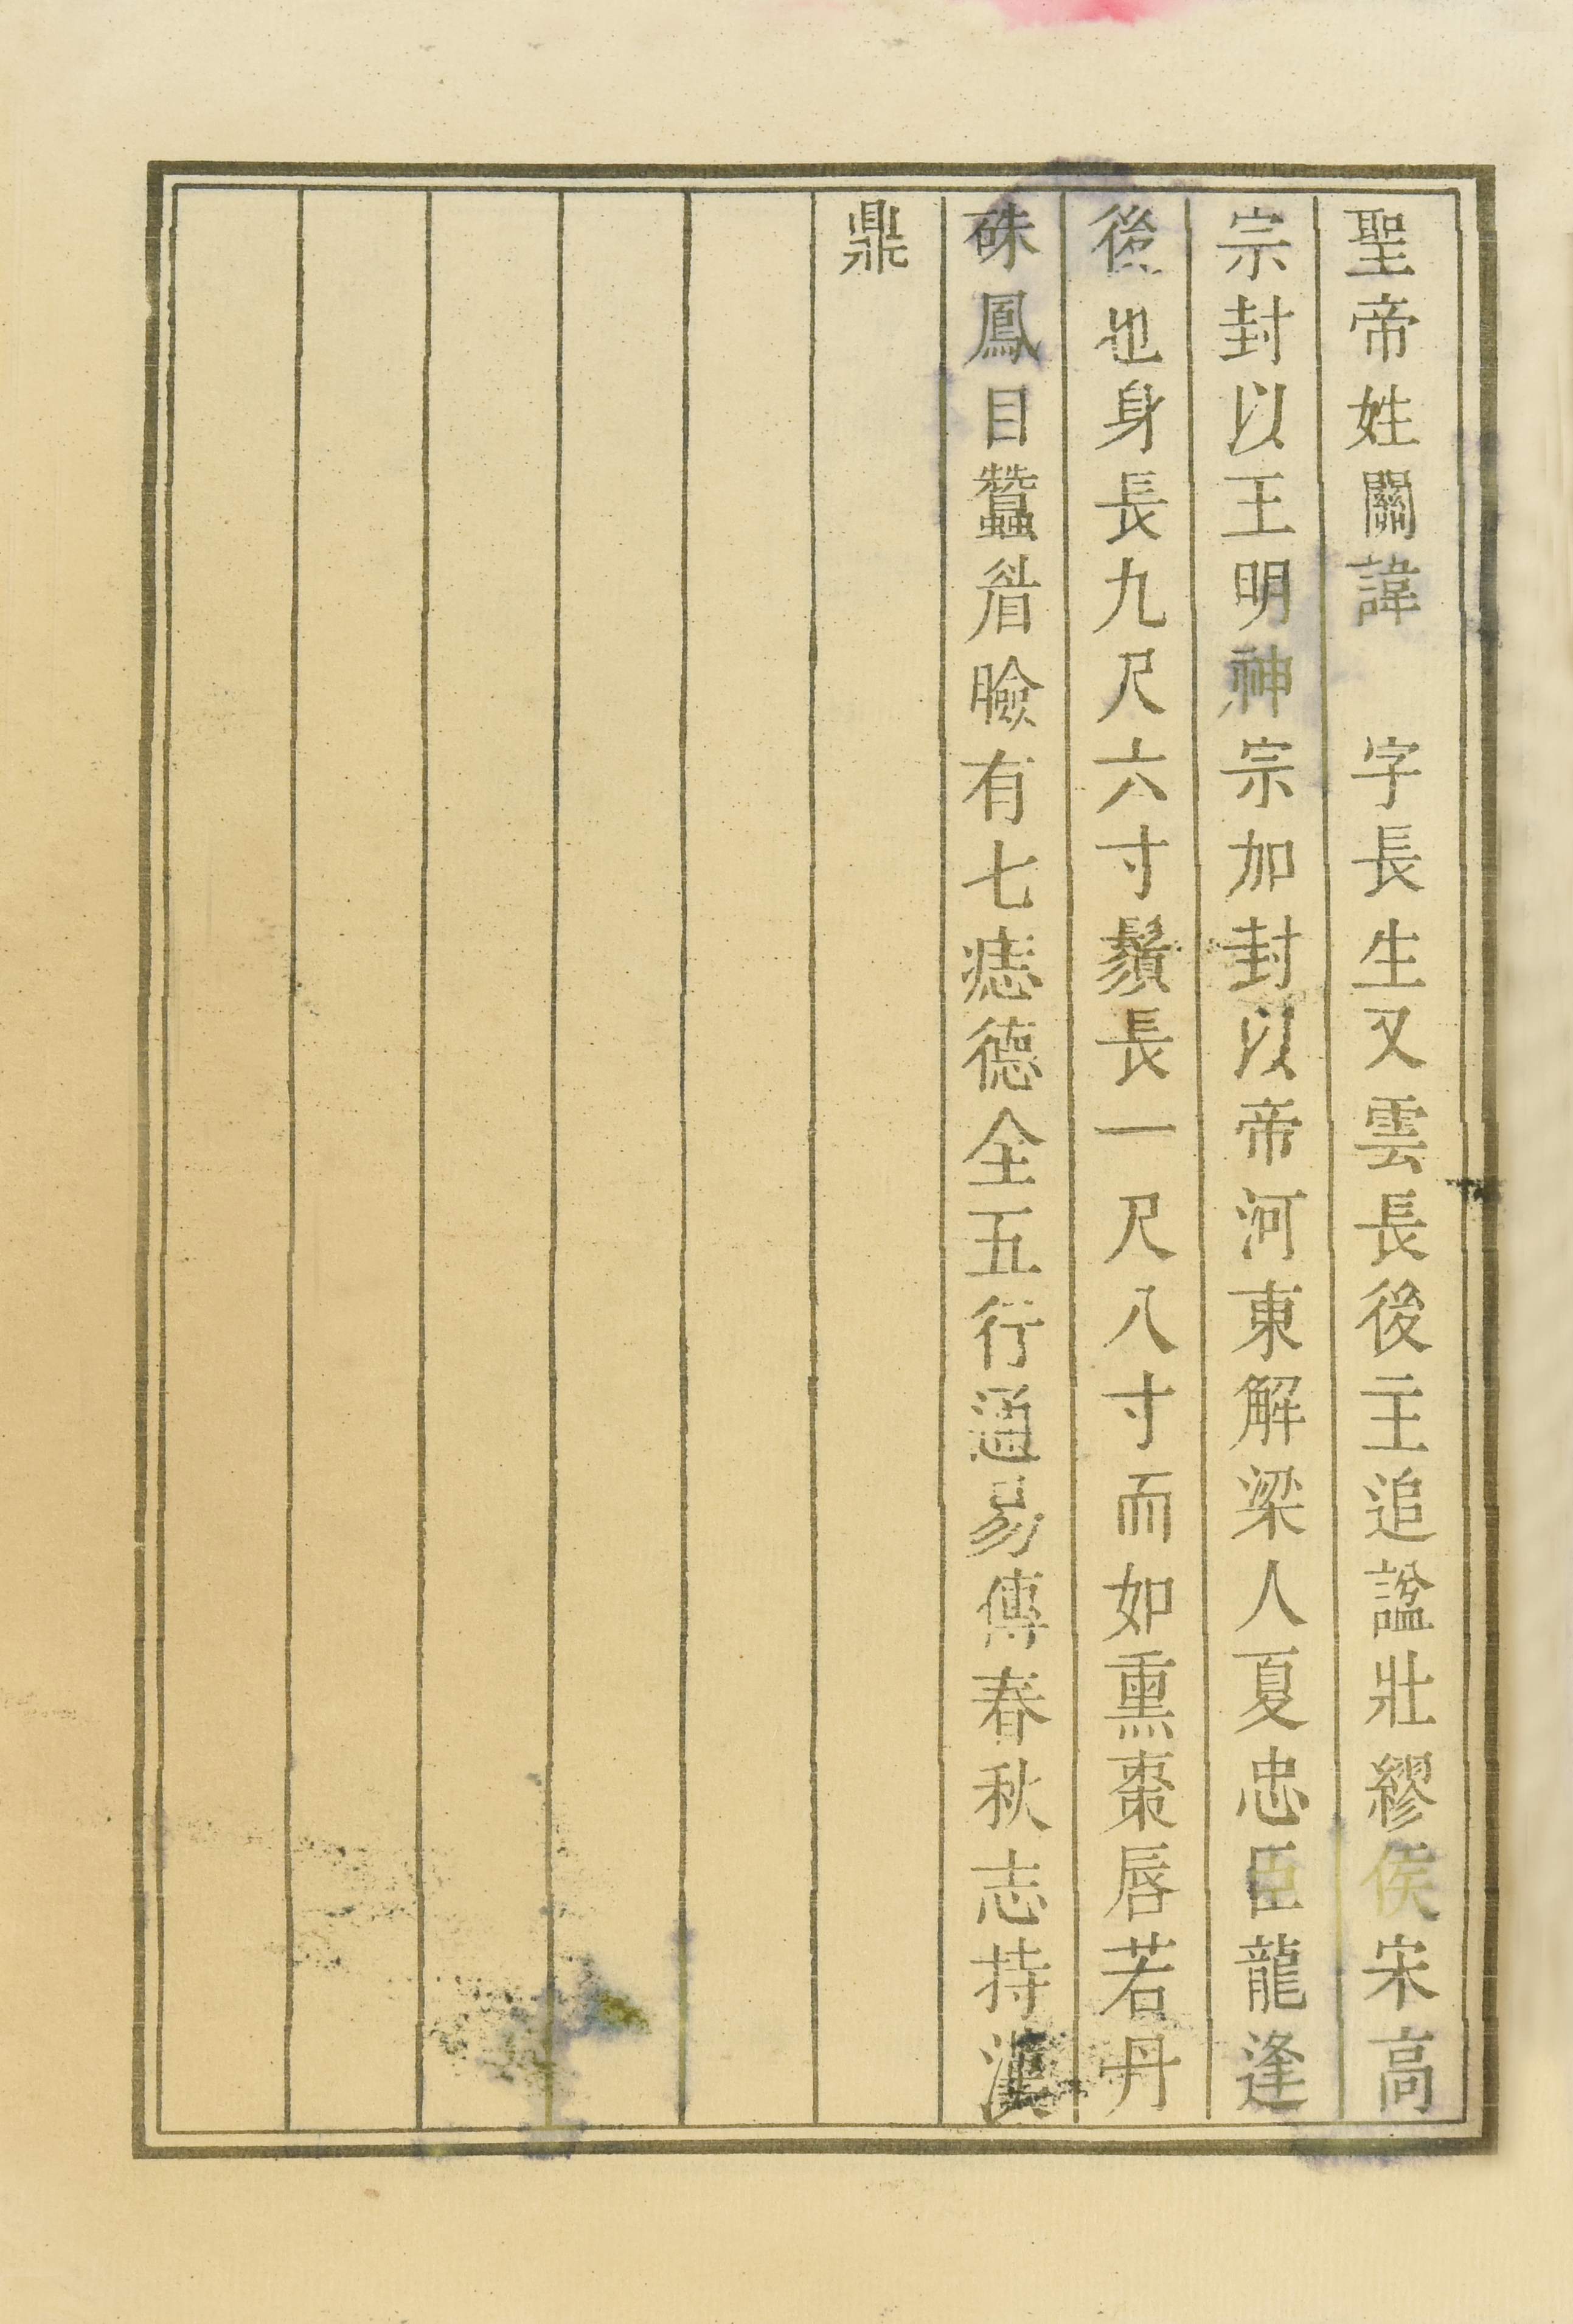 聖帝姓關諱　字長生又雲長後主追諡壯繆侯宋高
宗封以王明神宗加封以帝河東解梁人夏忠臣龍逄
後也身長九尺六寸鬚長一尺八寸而如熏棗唇若丹
硃鳳目蠶眉臉有七痣德全五行通易傳春秋志持漢
鼎